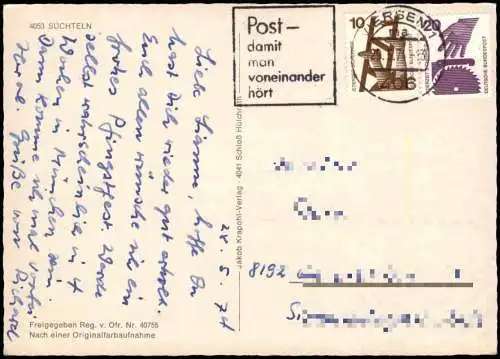 4053 SÜCHTELN
24. 5. 74
Liebe Hanne, hoffe Du
hast Dich wieder gut erholt.
Euch allen wünsche ich ein
frohes Pfingstfest. Werde
selbst wahrscheinlich in 4
Wochen in München sein.
Dann komme ich mal vorbei
Herzl. Grüße von Richard
Freigegeben Reg. v. Ofr. Nr. 40755
Nach einer Originalfarbaufnahme
Jakob Krapohl-Verlag · 4041 Schloß Hülchrath
Post–
damit
man
voneinander
hört
VIERSEN 1
406
10
20
DEUTSCHE BUNDESPOST
8192